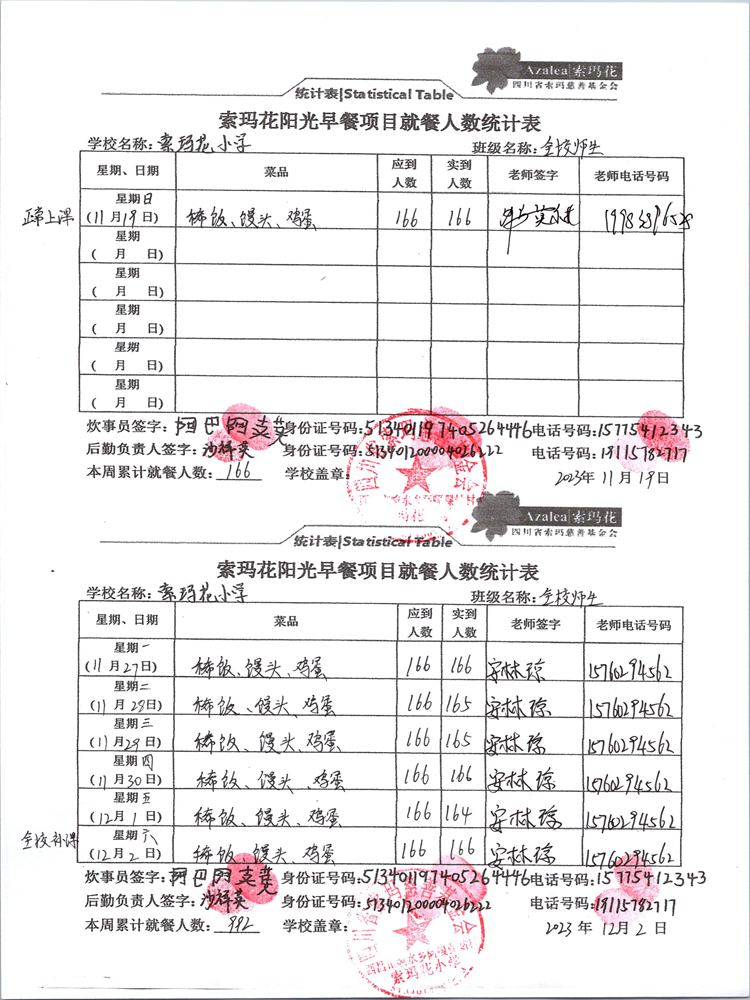 Azalea|索玛花
四川省索玛慈善基金会
统计表|Statistical Table
索玛花阳光早餐项目就餐人数统计表
学校名称:索玛花小学 班级名称:全校师生
星期、日期 菜品 应到人数 实到人数 老师签字 老师电话号码
正常上课 星期日 (11月19日) 稀饭、馒头、鸡蛋 166 166
星期 ( 月 日)
星期 ( 月 日)
星期 ( 月 日)
星期 ( 月 日)
星期 ( 月 日)
炊事员签字: 身份证号码:513401197405264446 电话号码:15775412343
后勤负责人签字: 身份证号码:513401200004026222 电话号码:18115782717
本周累计就餐人数:166 学校盖章: 2023年11月19日
Azalea|索玛花
四川省索玛慈善基金会
统计表|Statistical Table
索玛花阳光早餐项目就餐人数统计表
学校名称:索玛花小学 班级名称:全校师生
星期、日期 菜品 应到人数 实到人数 老师签字 老师电话号码
星期一 (11月27日) 稀饭、馒头、鸡蛋 166 166 安林琼 15760294562
星期二 (11月28日) 稀饭、馒头、鸡蛋 166 165 安林琼 15760294562
星期三 (11月29日) 稀饭、馒头、鸡蛋 166 165 安林琼 15760294562
星期四 (11月30日) 稀饭、馒头、鸡蛋 166 166 安林琼 15760294562
星期五 (12月1日) 稀饭、馒头、鸡蛋 166 164 安林琼 15760294562
全校补课 星期六 (12月2日) 稀饭、馒头、鸡蛋 166 166 安林琼 15760294562
炊事员签字: 身份证号码:513401197405264446 电话号码:15775412343
后勤负责人签字: 身份证号码:513401200004026222 电话号码:18115782717
本周累计就餐人数:992 学校盖章: 2023年12月2日
索玛花小学